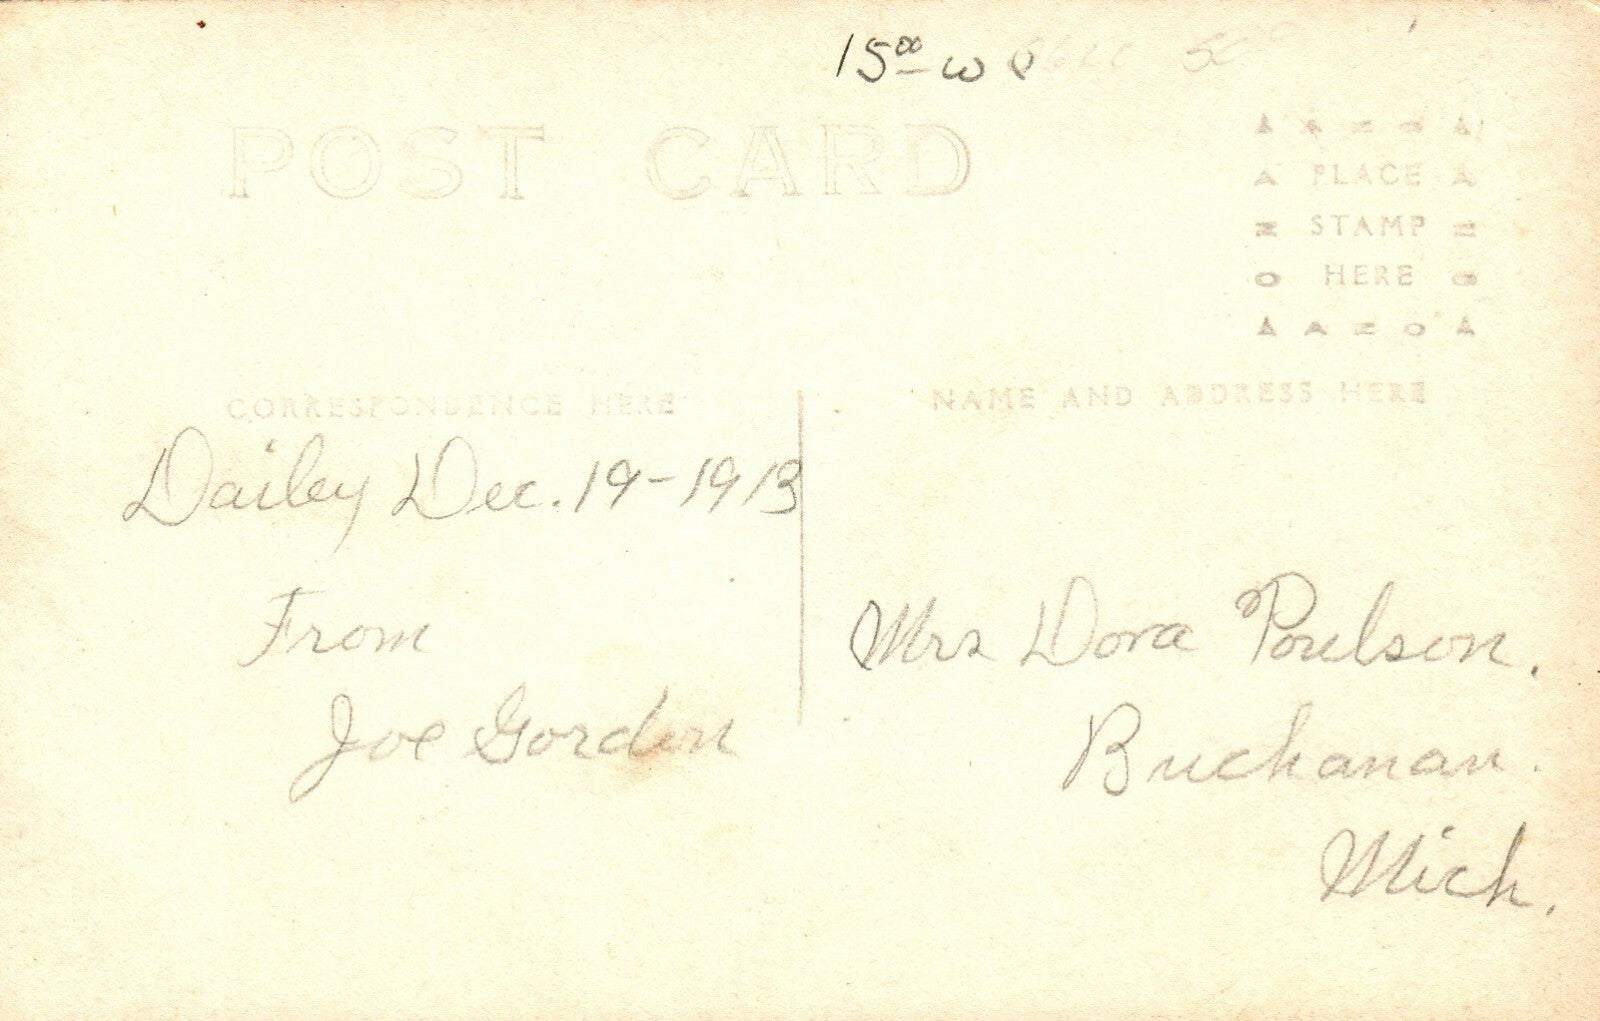 15⁰⁰ w
POST CARD
A Z O A
A PLACE A
Z STAMP Z
O HERE O
A A Z O A
CORRESPONDENCE HERE
NAME AND ADDRESS HERE
Dailey Dec. 19-1913
From
Joe Gordon
Mrs Dora Poulson.
Buchanan.
Mich.